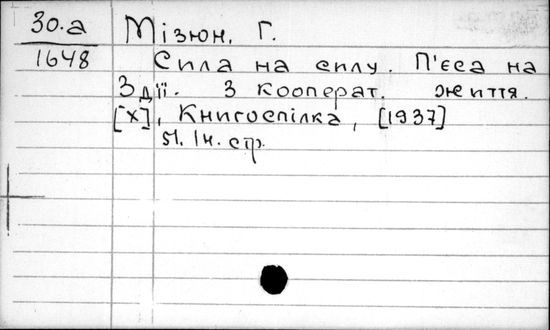 30.а
1648
Мізюн, Г.
Сила на силу. П'єса на
3 дії. З кооперат. життя.
[Х], Книгоспілка, [1937]
51. 1н. стр.